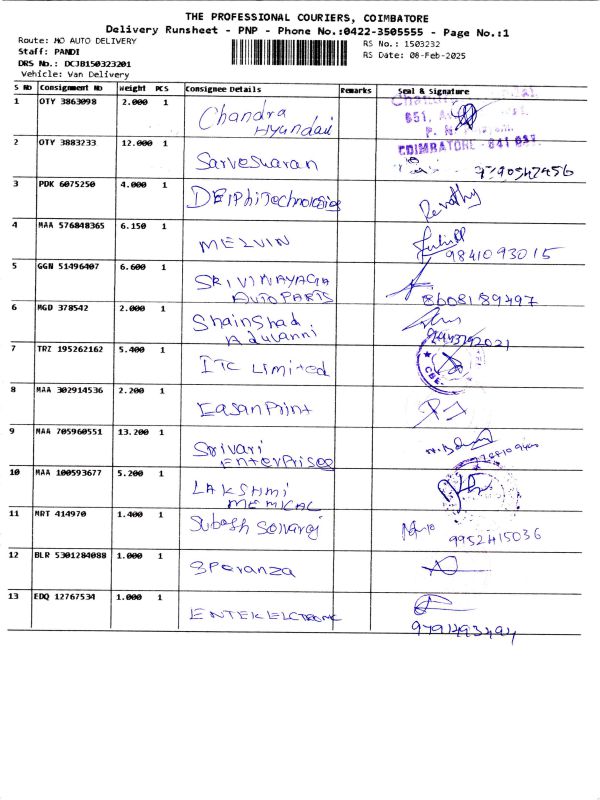 THE PROFESSIONAL COURIERS, COIMBATORE
Delivery Runsheet - PNP - Phone No.:0422-3505555 - Page No.:1
Route: MO AUTO DELIVERY
RS No.: 1503232
Staff: PANDI
RS Date: 08-Feb-2025
DRS No.: DCJB150323201
Vehicle: Van Delivery
S No Consignment No Weight PCS Consignee Details Remarks Seal & Signature
1 OTY 3863098 2.000 1 Chandra Hyundai
651,
COIMBATORE - 641 037.
2 OTY 3883233 12.000 1 Sarveswaran
3 PDK 6075250 4.000 1 DElphiTechnologies Revathy
4 MAA 576848365 6.150 1 MELVIN 9841093015
5 GGN 51496407 6.600 1 SRIVINAYAGA AUTO PARTS 8608189497
6 MGD 378542 2.000 1 Shainshad
7 TRZ 195262162 5.400 1 ITC Limited
8 MAA 302914536 2.200 1 EasanPrint
9 MAA 705960551 13.200 1 Srivari EnterPrises
10 MAA 100593677 5.200 1 LAKSHMI
11 MRT 414970 1.400 1 Subash 9952415036
12 BLR 5301284088 1.000 1 Speranza
13 EDQ 12767534 1.000 1 ENTEK